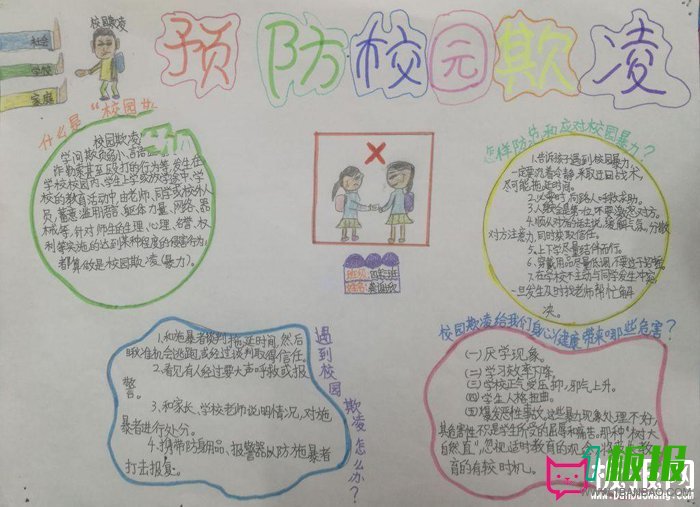 预防校园欺凌
校园欺凌
社会
学校
家庭
什么是
"校园
校园欺凌
学校校园内、学生上学或放学途中、学
校的教育活动中,由老师、同学或校外人
员,蓄意滥用语言、躯体力量、网络、器
械等,针对师生的生理、心理、名誉、权
利等实施的达到某种程度的侵害行为,
都算做是校园欺凌(暴力)。
班级
姓名
怎样防范和应对校园暴力?
1.告诉孩子遇到校园暴力,
一定要沉着冷静,采取迂回战术,
尽可能拖延时间。
2.必要时,向路人呼救求助,
3.人身安全是第一位,不要激怒对方。
4.顺从对方的话去说,缓解气氛,分散
对方注意力,同时获取信任。
5.上下学尽量结伴而行。
6.穿戴用品尽量低调,不要过于招摇。
7.在学校不主动与同学发生冲突,
一旦发生及时找老师帮忙解
决。
遇到校园欺凌怎么办?
1.和施暴者谈判拖延时间,然后
瞅准机会逃跑或经过谈判取得信任。
2.看见有人经过要大声呼救或报
警。
3.和家长、学校老师说明情况,对施
暴者进行处分。
4.携带防身用品、报警器以防施暴者
打击报复。
校园欺凌给我们身心健康带来哪些危害?
(一)厌学现象。
(二)学习效率下降。
(三)学校正气受压抑,邪气上升。
(四)学生人格扭曲。
(五)爆发恶性事故,这些暴力现象处理不好,
其危害性不只是学生所受的屈辱和痛苦。那种"树大
自然直",忽视适时教育的观念
育的有效时机。
板报